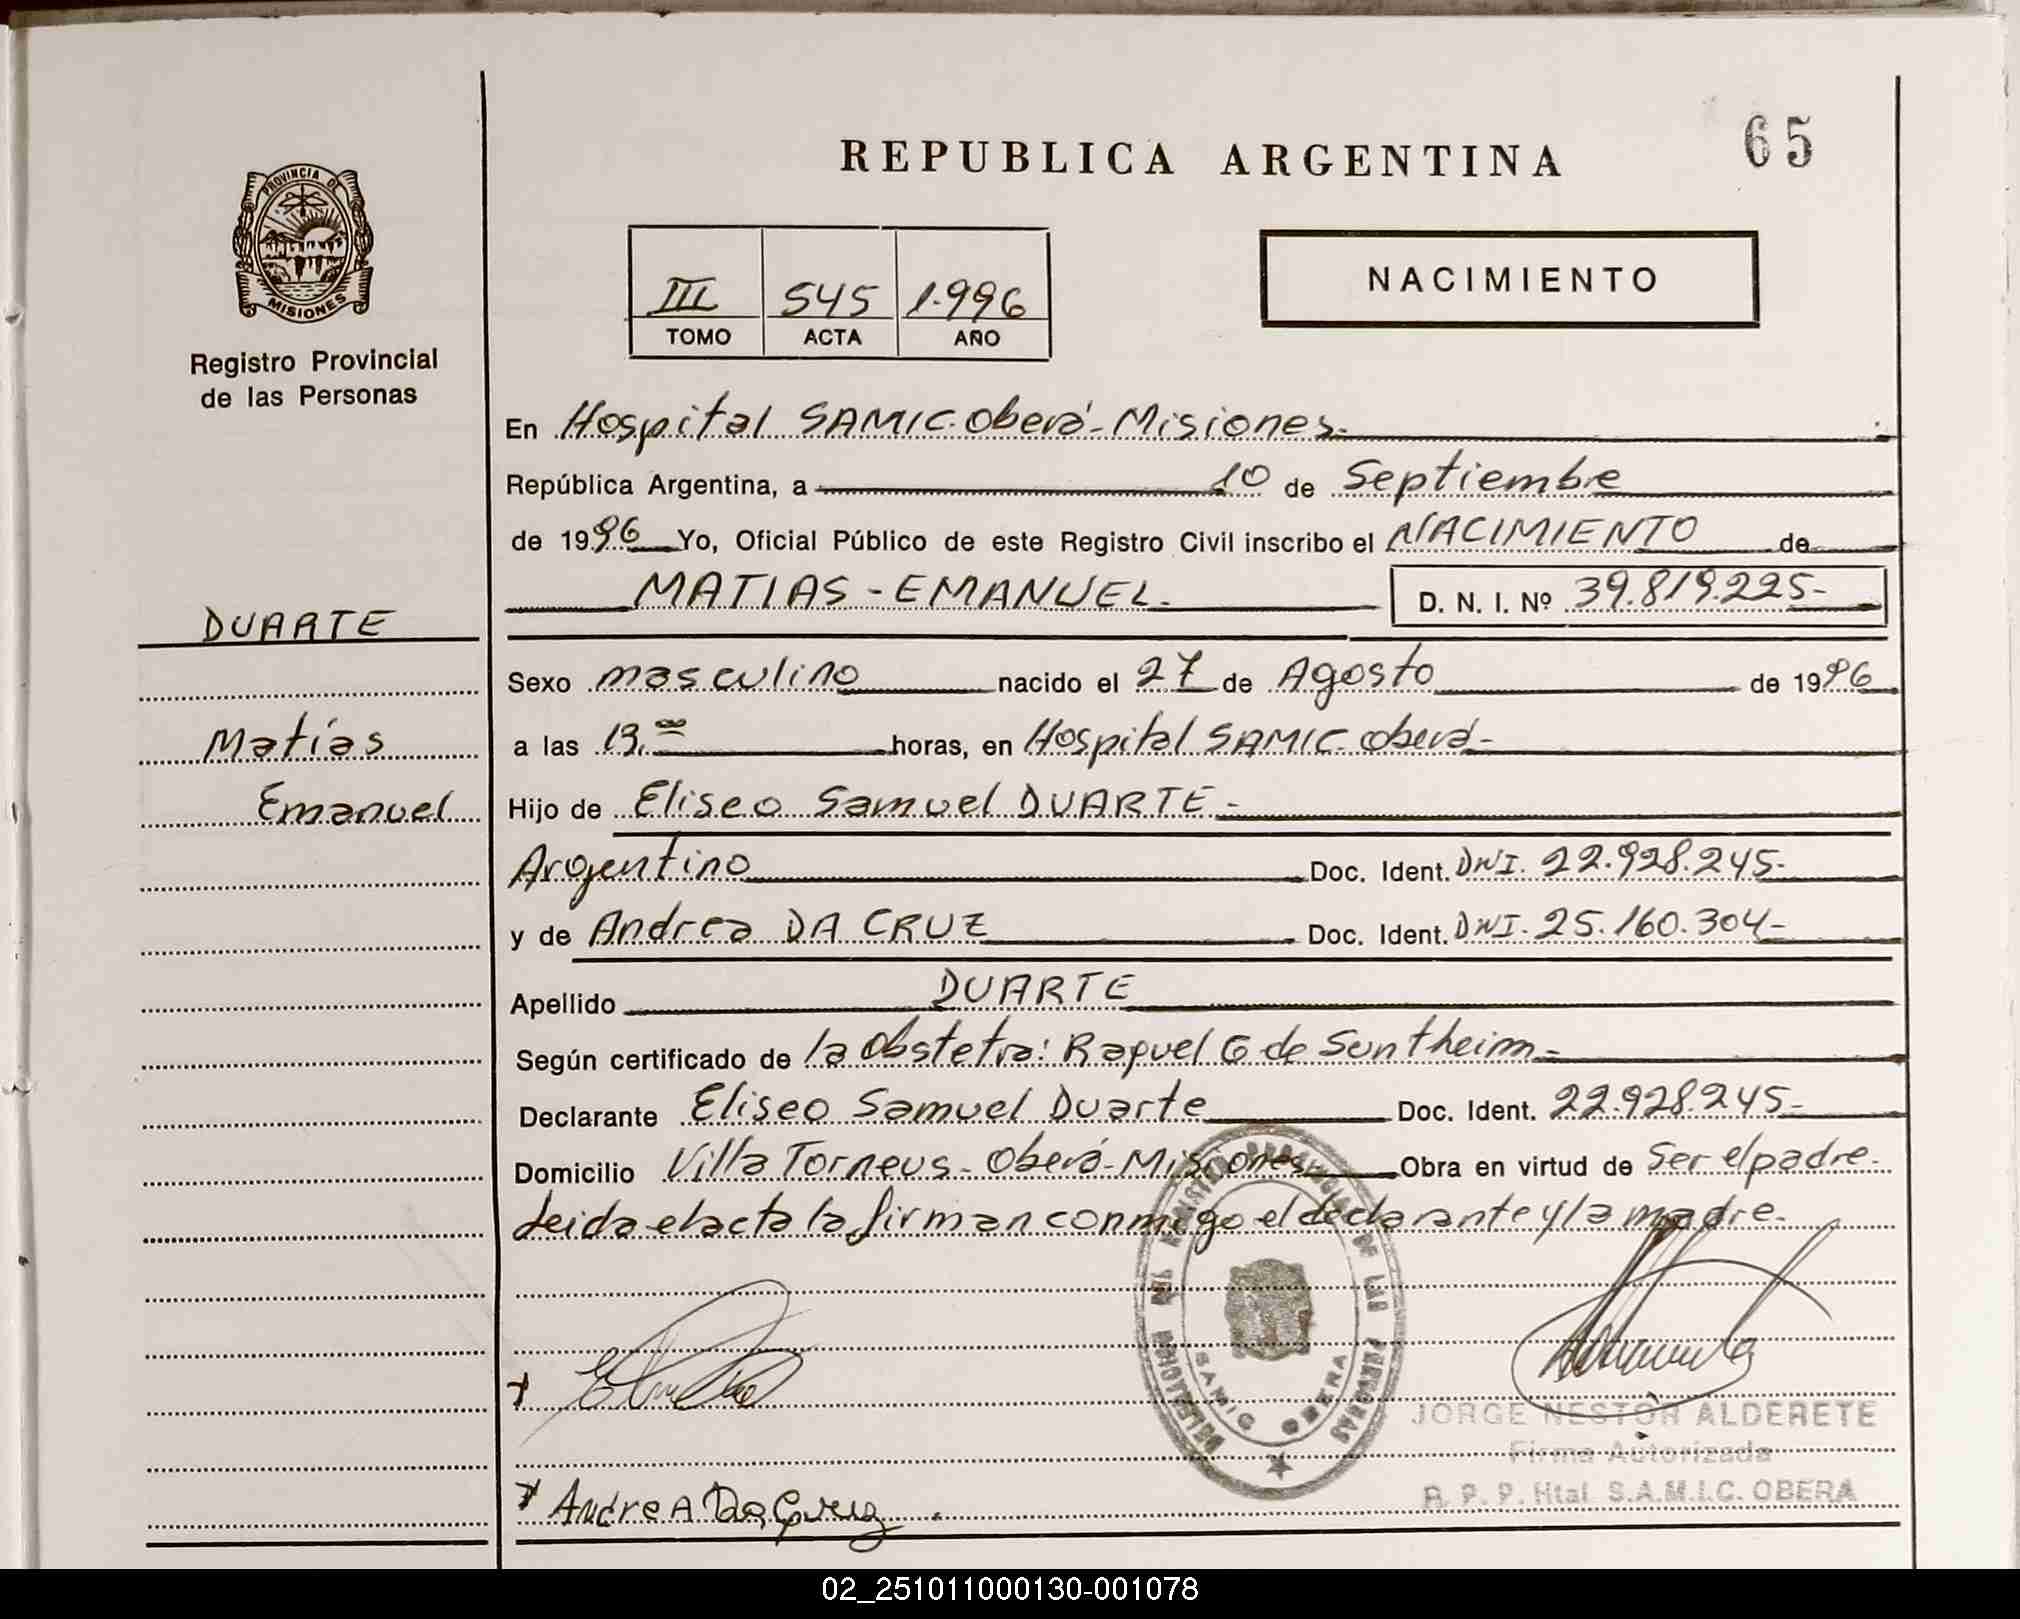 65
REPUBLICA ARGENTINA
PROVINCIA DE
MISIONES
Registro Provincial
de las Personas
III 545 1.996
TOMO ACTA AÑO
NACIMIENTO
En Hospital SAMIC. Oberá - Misiones.
República Argentina, a 10 de Septiembre
de 1996 Yo, Oficial Público de este Registro Civil inscribo el NACIMIENTO de
MATIAS - EMANUEL. D. N. I. Nº 39.819.225-
DUARTE
Matías
Emanuel
Sexo masculino nacido el 27 de Agosto de 1996
a las 13.00 horas, en Hospital SAMIC Oberá-
Hijo de Eliseo Samuel DUARTE-
Argentino Doc. Ident. DNI. 22.928.245-
y de Andrea DA CRUZ Doc. Ident. DNI. 25.160.304-
Apellido DUARTE
Según certificado de la Obstetra: Raquel G de Suntheim-
Declarante Eliseo Samuel Duarte Doc. Ident. 22.928.245-
Domicilio Villa Torneus - Oberá - Misiones Obra en virtud de Ser el padre-
Leida el acta la firman conmigo el declarante y la madre.
SAMIC OBERA
JORGE NESTOR ALDERETE
Firma Autorizada
R. P. P. Htal S.A.M.I.C. OBERA
Andrea Da Cruz
02_251011000130-001078